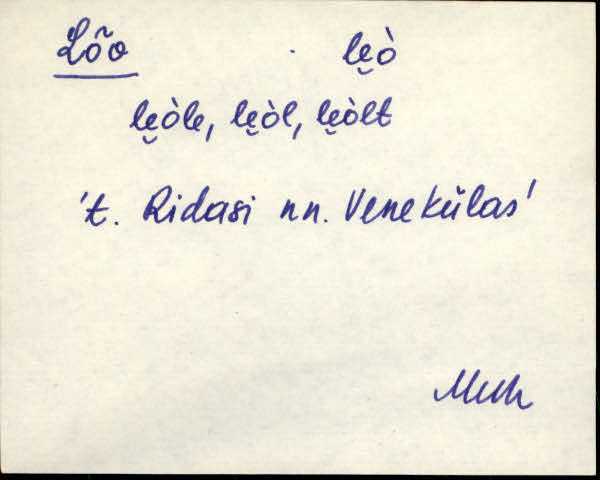 Lõo le̮ò
le̮òle, le̮òl, le̮òlt
't. Ridasi nn. Venekülas'
Muh